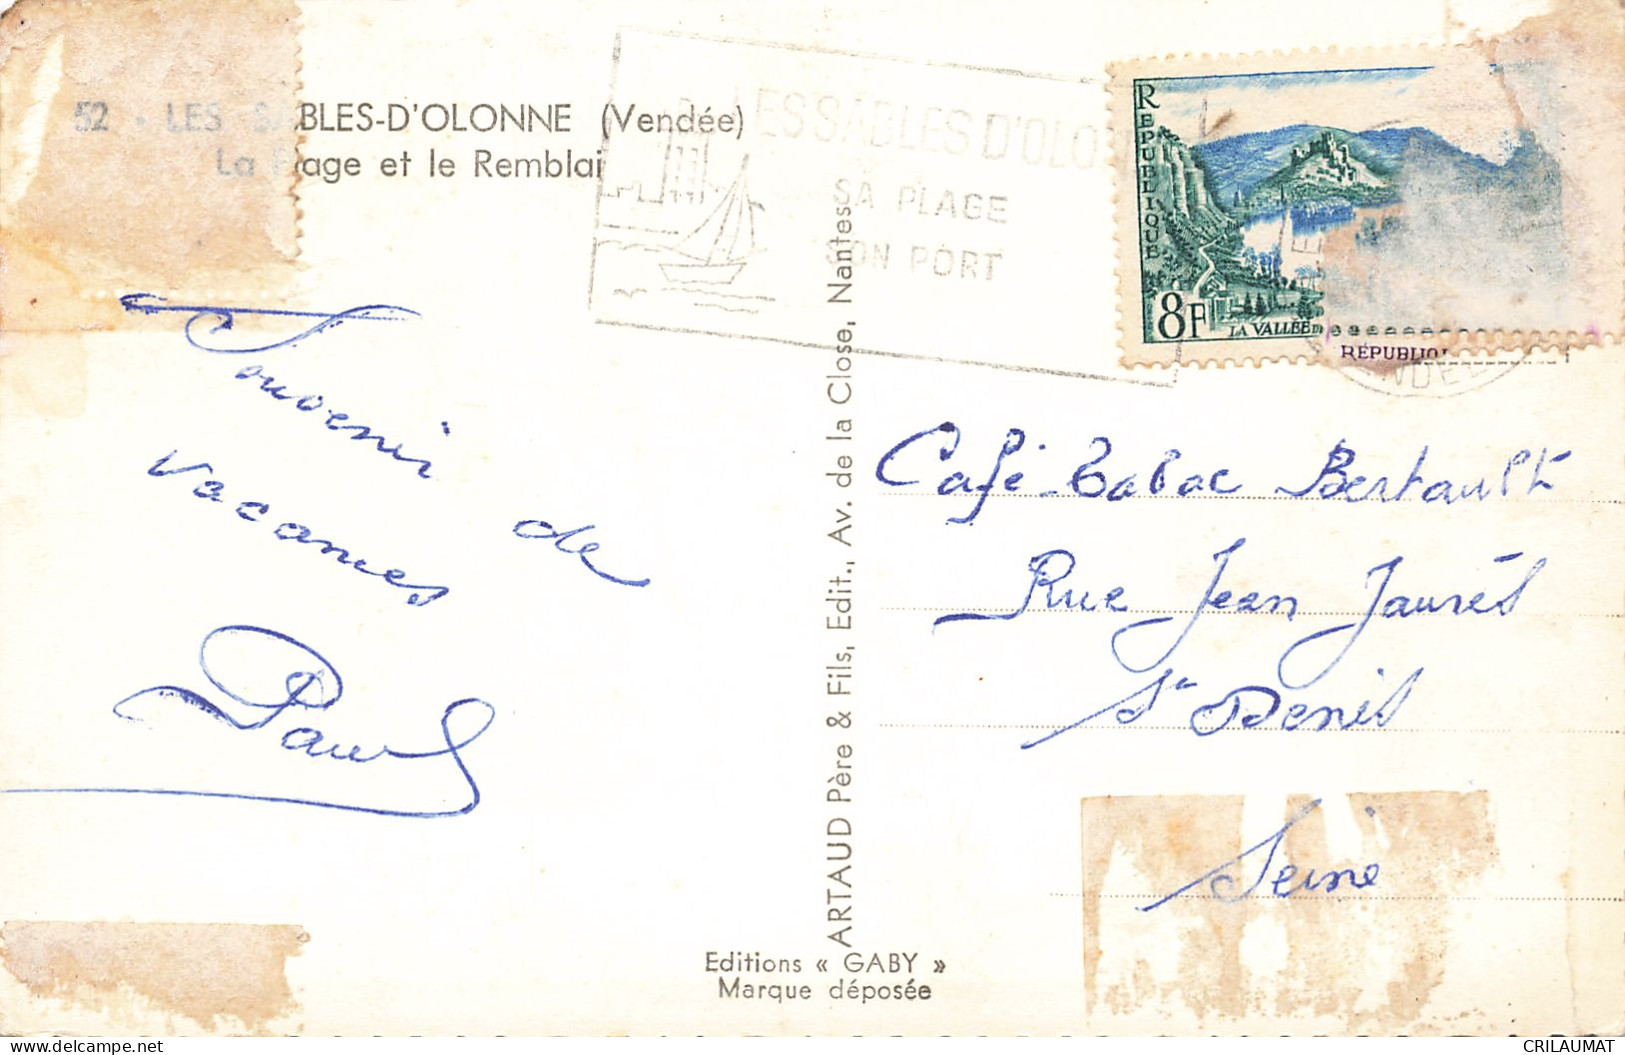 52 - LES SABLES-D'OLONNE (Vendée)
La Plage et le Remblai
LES SABLES D'OLO
SA PLAGE
SON PORT
REPUBLIQUE
8F
LA VALLEE
RÉPUBLIQ
Souvenir de
vacances
Paul
ARTAUD Père & Fils, Edit., Av. de la Close, Nantes
Café-Tabac Bertault
Rue Jean Jaurès
St Denis
Seine
Editions « GABY »
Marque déposée
CRILAUMAT